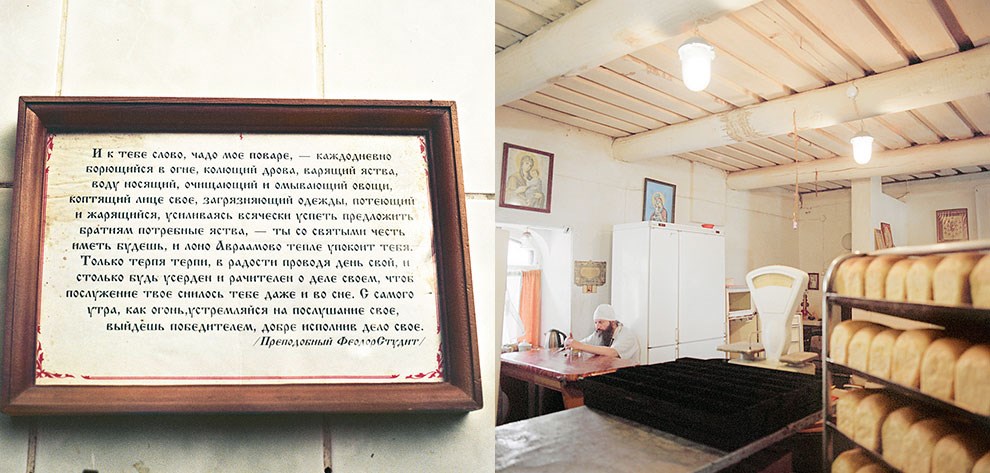 И к тебе слово, чадо мое поваре, — каждодневно
борющийся в огне, колющий дрова, варящий яства,
воду носящий, очищающий и омывающий овощи,
коптящий лице свое, загрязняющий одежды, потеющий
и жарящийся, усиливаясь всячески успеть предложить
братиям потребные яства, — ты со святыми честь
иметь будешь, и лоно Авраамово тепле упокоит тебя.
Только терпя терпи, в радости проводя день свой, и
столько будь усерден и рачителен о деле своем, чтоб
послужение твое снилось тебе даже и во сне. С самого
утра, как огонь,устремляйся на послушание свое,
выйдёшь победителем, добре исполнив дело свое.
/Преподобный ФеодорСтудит/